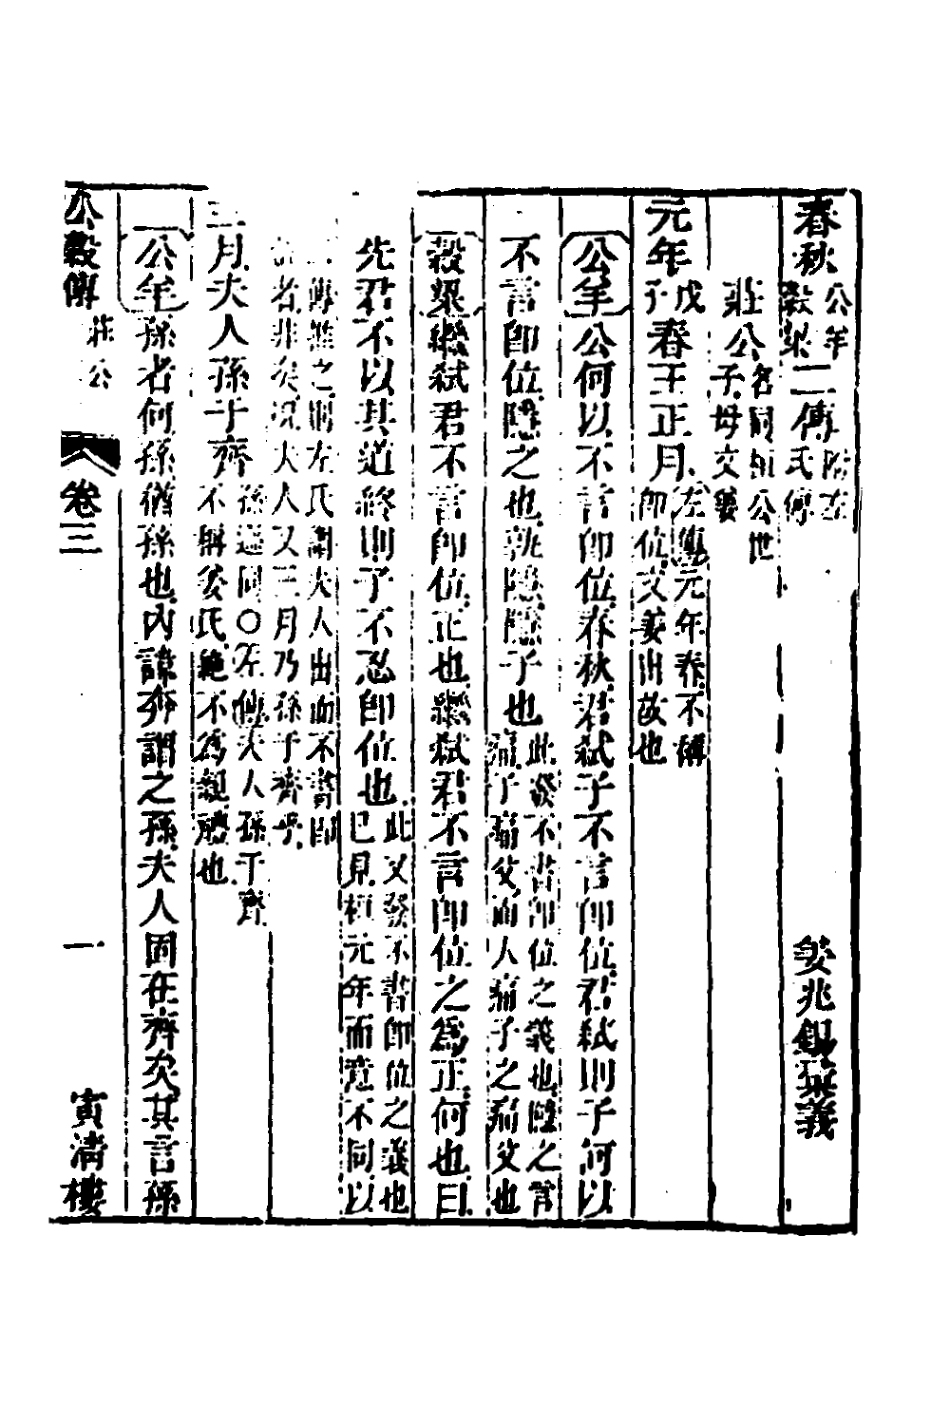 春秋公羊穀梁二傳附左氏傳 姜兆錫彙義
莊公名同桓公世子母文姜
元年戊子春王正月左傳元年春不稱即位文姜出故也
公羊公何以不言即位春秋君弒子不言即位君弒則子何以
不言即位隱之也孰隱隱子也此發不書即位之義也隱之言痛子痛父而人痛子之痛父也
穀梁繼弒君不言即位正也繼弒君不言即位之爲正何也曰
先君不以其道終則子不忍即位也此又發不書即位之義也已見桓元年而意不同以
傳推之則左氏謂夫人出而不書即者非矣況夫人又三月乃孫于齊乎
三月夫人孫于齊孫遜同○左傳夫人孫于齊不稱姜氏絶不爲親禮也
公羊孫者何孫猶孫也內諱奔謂之孫夫人固在齊矣其言孫
公穀傳 莊公 卷三 一 寅清樓